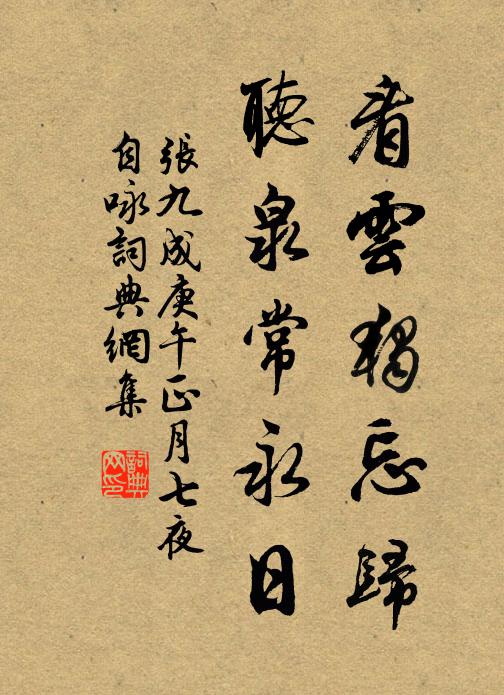 看雲獨忘歸
聽泉常永日
張九成庚午正月七夜
自咏詞典網集
詞典
网印